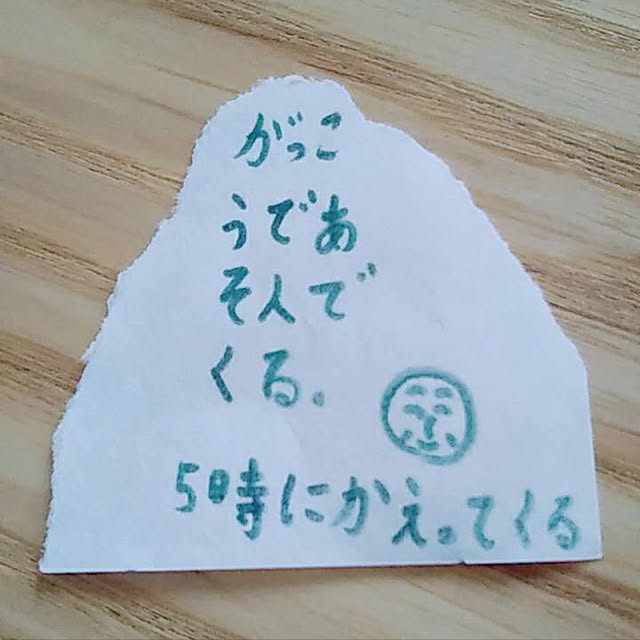 がっこ
うであ
そんで
くる。
5時にかえってくる